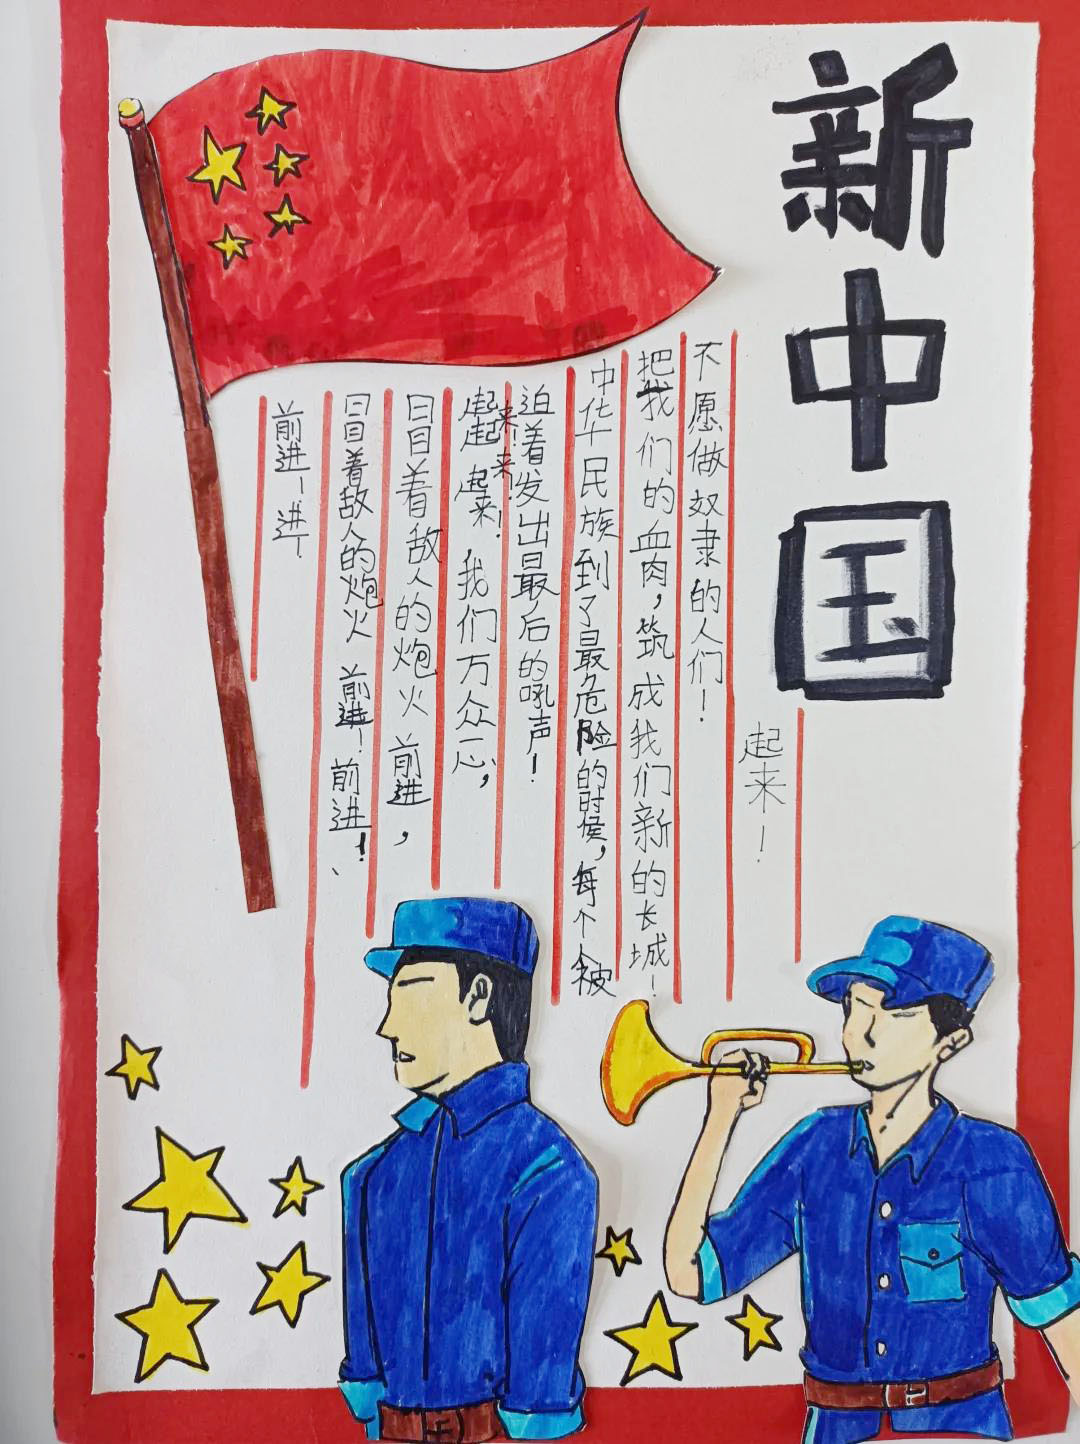 新中国
起来！
不愿做奴隶的人们！
把我们的血肉，筑成我们新的长城！
中华民族到了最危险的时候，每个人被
迫着发出最后的吼声！
起来！起来！起来！我们万众一心，
冒着敌人的炮火 前进，
冒着敌人的炮火 前进！前进！
前进！进！